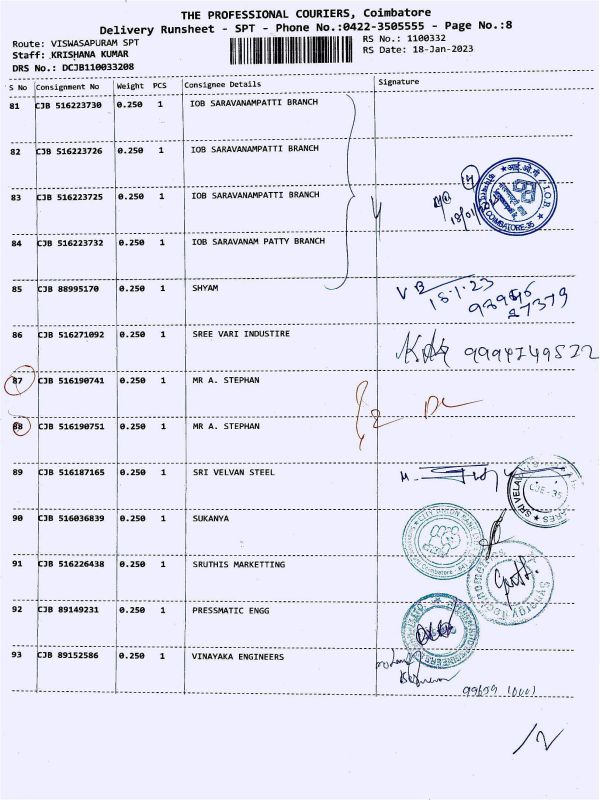 THE PROFESSIONAL COURIERS, Coimbatore
Delivery Runsheet - SPT - Phone No.:0422-3505555 - Page No.:8
Route: VISWASAPURAM SPT
RS No.: 1100332
Staff: KRISHANA KUMAR
RS Date: 18-Jan-2023
DRS No.: DCJB110033208
S No Consignment No Weight PCS Consignee Details Signature
81 CJB 516223730 0.250 1 IOB SARAVANAMPATTI BRANCH
82 CJB 516223726 0.250 1 IOB SARAVANAMPATTI BRANCH
83 CJB 516223725 0.250 1 IOB SARAVANAMPATTI BRANCH
84 CJB 516223732 0.250 1 IOB SARAVANAM PATTY BRANCH
I.O.B.
COIMBATORE-35
85 CJB 88995170 0.250 1 SHYAM
86 CJB 516271092 0.250 1 SREE VARI INDUSTIRE
87 CJB 516190741 0.250 1 MR A. STEPHAN
88 CJB 516190751 0.250 1 MR A. STEPHAN
89 CJB 516187165 0.250 1 SRI VELVAN STEEL
CJE-35
90 CJB 516036839 0.250 1 SUKANYA
91 CJB 516226438 0.250 1 SRUTHIS MARKETTING
92 CJB 89149231 0.250 1 PRESSMATIC ENGG
93 CJB 89152586 0.250 1 VINAYAKA ENGINEERS